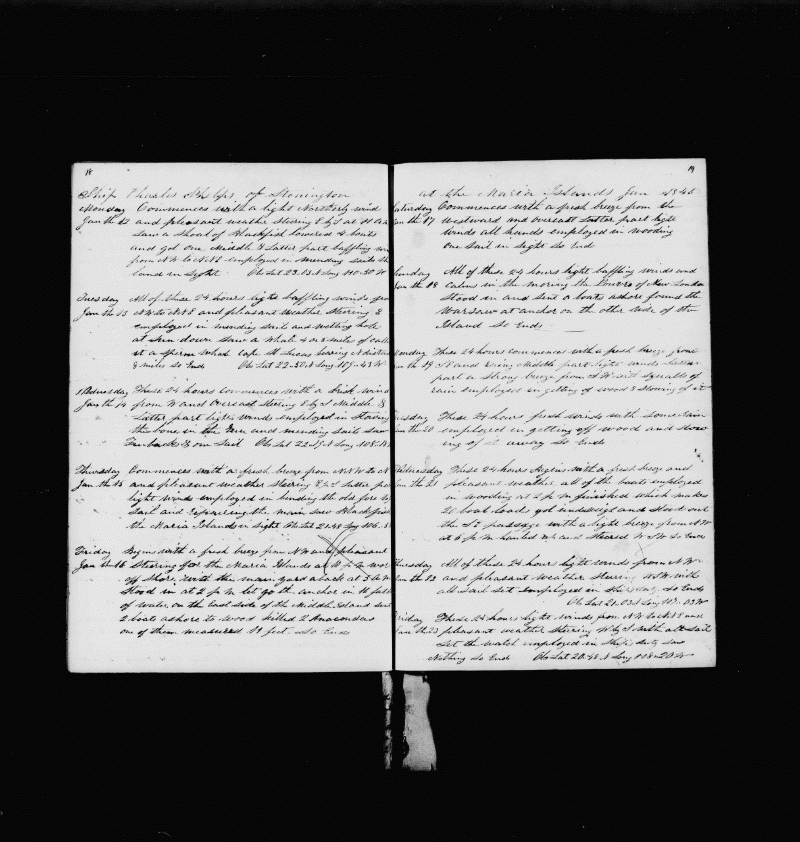 18
Ship Charles Phelps of Stonington
Monday Commences with a light Northerly wind
Jan th 12 and pleasant weather Steering E by S at 11 AM
Saw a Shoal of Blackfish lowered 4 boats
and got one Middle & Latter part baffling
from NW to NNE employed in mending sails the
land in Sight Ob Lat 23.03 N Long 110-30 W
Tuesday All of these 24 hours light baffling winds from
Jan th 13 NW to NNE and pleasant weather Steering E
employed in mending sails and wetting hole
at Sun down Saw a Whale 4 or 5 miles of called
it a Sperm Whale Cape St Lucas bearing N distant
8 miles So Ends Ob Lat 22-30 N Long 109-43 W
Wednesday These 24 hours Commences with a Brisk wind
Jan th 14 from W and Overcast Steering E by S Middle &
Latter part light winds employed in Stowing
the bone in the Run and mending sails saw
Finbacks & one Sail Ob Lat 22 Long 108
Thursday Commences with a fresh breeze from NNW to N
Jan th 15 and pleasant weather Steering E by S Latter part
light winds employed in bending the old fore
Sail and repairing the main Saw Blackfish
the Maria Islands in Sight Ob Lat 21.48 Long 106
Friday Begins with a fresh breeze from NW and pleasant
Jan th 16 Steering for the Maria Islands at PM
off Shore with the main yard aback at
Stood in at 2 PM let go the anchor in
of water on the East side of the Middle Island sent
2 boats ashore to wood killed 2 Anacondas
one of them measured 11 feet So Ends
19
at the Maria Islands Jan 1845
Saturday Commences with a fresh breeze from the
Jan th 17 Westward and Overcast Latter part light
Winds all hands employed in wooding
One Sail in Sight So Ends
Sunday All of these 24 hours light baffling winds and
Jan th 18 Calms in the morning the Louvre of New London
Stood in and sent 2 boats ashore found the
Warsaw at anchor on the other side of the
Island So Ends
Monday These 24 hours commences with a fresh breeze from
Jan th 19 Middle part light winds Latter
part a Strong breeze from SW with Squalls of
rain employed in getting of wood & Stowing of it
Tuesday These 24 hours fresh winds with some rain
Jan th 20 employed in getting off wood and Stow
ing of it away So Ends
Wednesday These 24 hours Begins with a fresh breeze and
Jan th 21 pleasant weather all of the boats employed
in wooding at 2 PM finished which makes
20 boat loads got underweigh and Stood out
the passage with a light breeze from NW
at 6 PM hauled and Steered WSW So Ends
Thursday All of these 24 hours light winds from NW
Jan th 22 and pleasant weather Steering WSW with
all sail Set Employed in Ships duty So Ends
Ob Lat 21.03 N Long 107.03 W
Friday These 24 hours light winds from NW to NNE and
Jan th 23 pleasant weather Steering W by S with all Sail
Set the watch employed in Ships duty Saw
Nothing So Ends Ob Lat 20.48 N Long 108-20 W